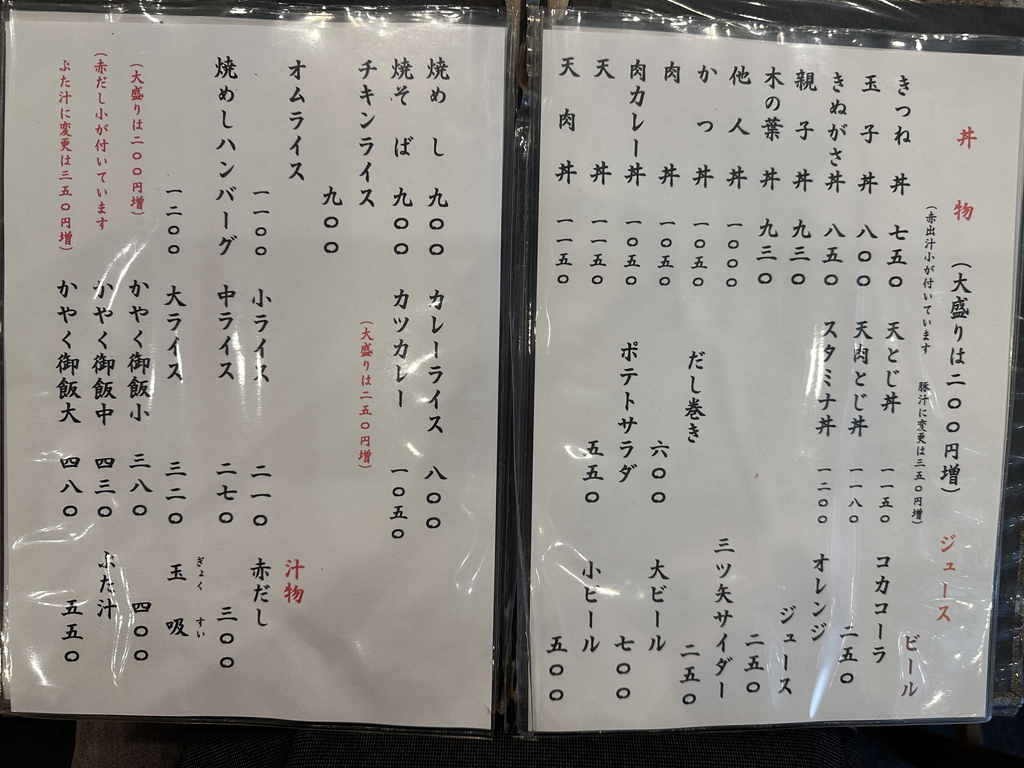 丼物（大盛りは二〇〇円増）
（赤出汁小が付いています　豚汁に変更は三五〇円増）
きつね丼　七五〇
玉子丼　八〇〇
きぬがさ丼　八五〇
親子丼　九三〇
木の葉丼　九三〇
他人丼　一〇〇〇
かつ丼　一〇五〇
肉丼　一〇五〇
肉カレー丼　一〇五〇
天丼　一一五〇
天肉丼　一一五〇
天とじ丼　一一五〇
天肉とじ丼　一一八〇
スタミナ丼　一二〇〇
だし巻き　六〇〇
ポテトサラダ　五五〇
ジュース
ビール
コカコーラ　二五〇
オレンジ
ジュース　二五〇
三ツ矢サイダー　二五〇
大ビール　七〇〇
小ビール　五〇〇
焼めし　九〇〇
焼そば　九〇〇
チキンライス　九〇〇
オムライス　一一〇〇
焼めしハンバーグ　一二〇〇
（大盛りは二〇〇円増）
（赤だし小が付いています
ぶた汁に変更は三五〇円増）
カレーライス　八〇〇
カツカレー　一〇五〇
（大盛りは二五〇円増）
小ライス　二一〇
中ライス　二七〇
大ライス　三二〇
かやく御飯小　三八〇
かやく御飯中　四三〇
かやく御飯大　四八〇
汁物
赤だし　三〇〇
ぎょくすい
玉吸　四〇〇
ぶた汁　五五〇